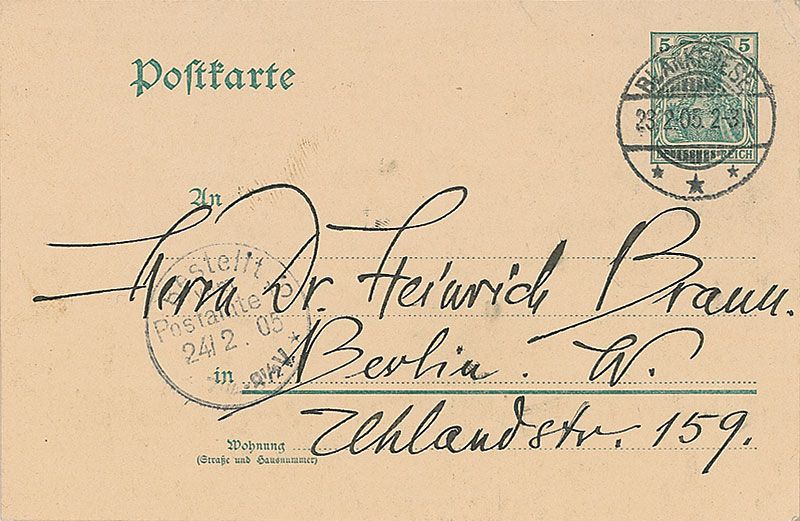 Postkarte
5 5
DEUTSCHES REICH
BLANKENESE
23.2.05. 2-3N
An
Herrn Dr. Heinrich Braun.
Bestellt
Postamte
24/2.05
in Berlin. W.
Uhlandstr. 159.
Wohnung
(Straße und Hausnummer)